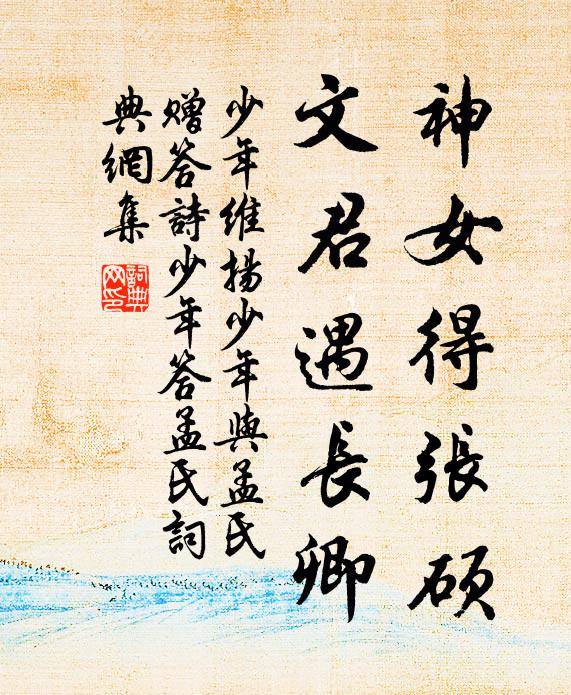 神女得張碩
文君遇長卿
少年維揚少年與孟氏
贈答詩少年答孟氏詞
典網集
詞典
网印